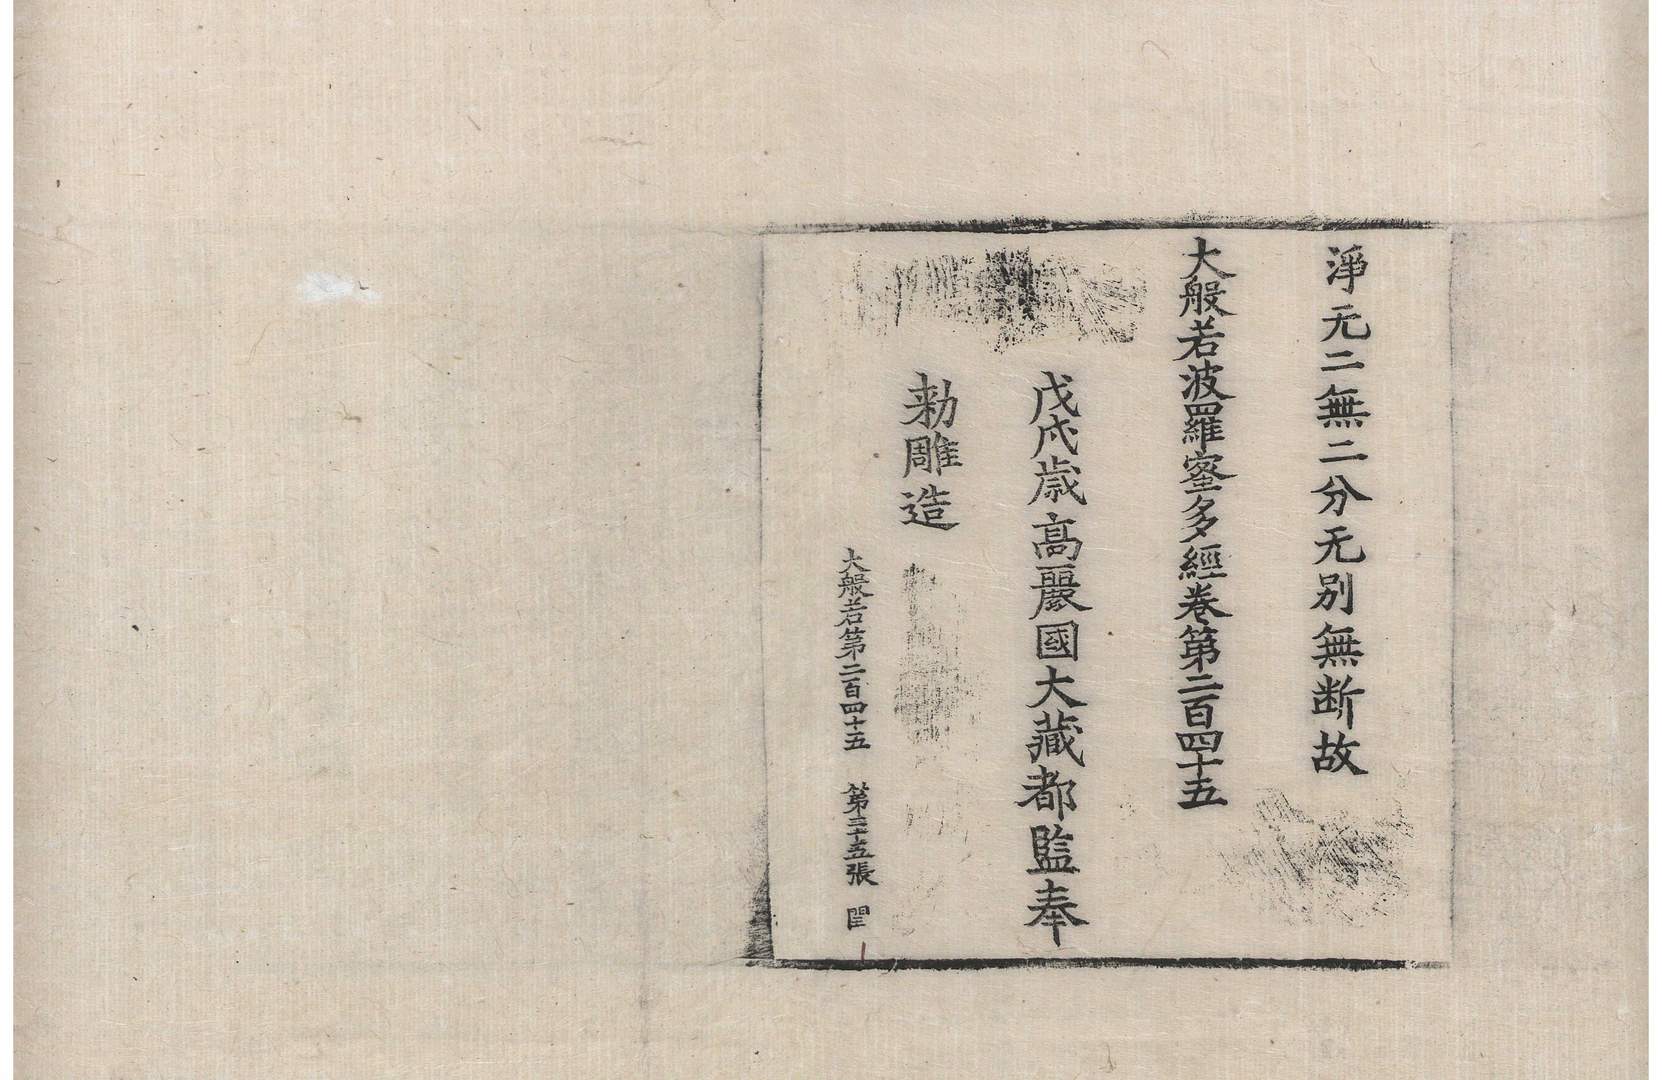 淨无二無二分无別無断故
大般若波羅蜜多經卷第二百四十五
戊戌歳髙麗國大藏都監奉
勑雕造
大般若第二百四十五 第三十五張 閏